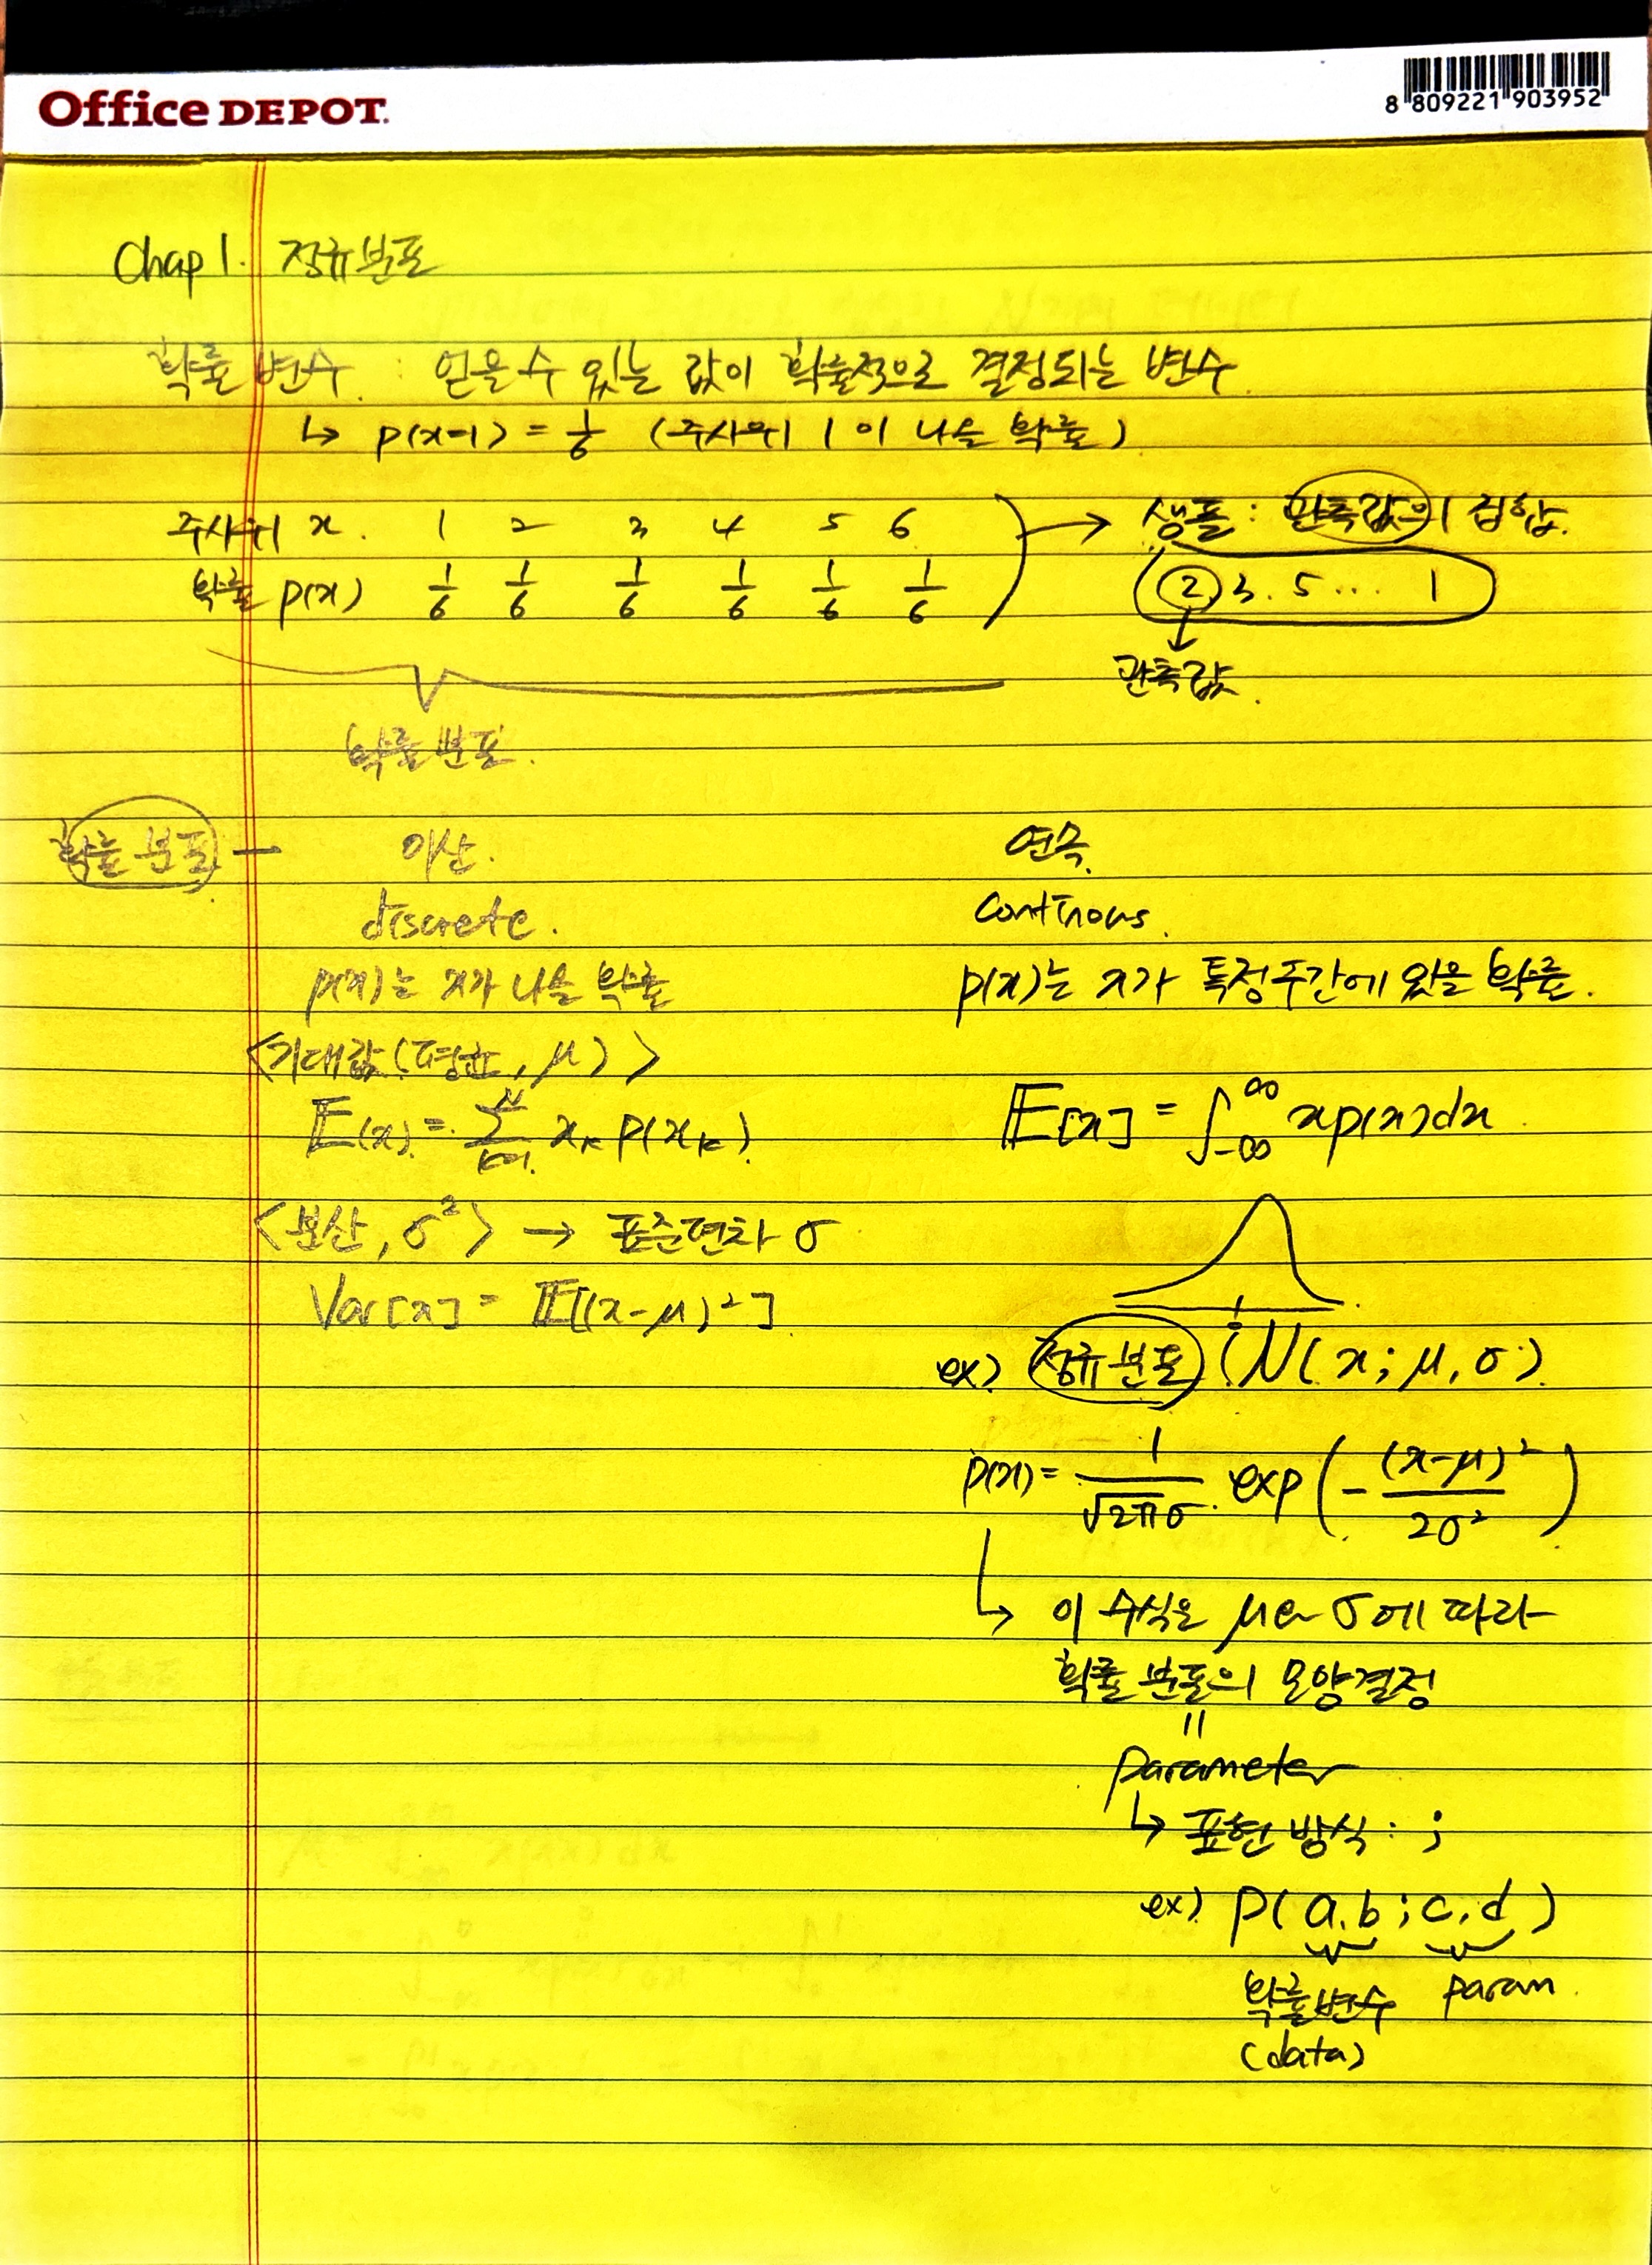 Office DEPOT.
8 809221 903952
Chap 1. 정규분포
확률 변수 : 얻을 수 있는 값이 확률적으로 결정되는 변수
↳ p(x=1) = 1/6 (주사위 1이 나올 확률)
주사위 x. 1 2 3 4 5 6
확률 p(x) 1/6 1/6 1/6 1/6 1/6 1/6
확률분포.
→ 샘플 : 관측값의 집합.
2, 3. 5 ... 1
↓
관측값.
확률 분포 —
이산.
discrete.
p(x)는 x가 나올 확률
<기대값(평균, μ)>
𝔼(x) = Σ xₖ p(xₖ)
<분산, σ²> → 표준편차 σ
Var[x] = 𝔼[(x-μ)²]
연속.
continous.
p(x)는 x가 특정구간에 있을 확률.
𝔼[x] = ∫₋∞^∞ xp(x)dx
ex) 정규분포 (N(x; μ, σ)
p(x) = 1/(√2π σ) exp(-(x-μ)²/2σ²)
↳ 이 수식은 μ와 σ에 따라
확률 분포의 모양결정
=
parameter
↳ 표현 방식 : ;
ex) p(a, b ; c, d)
확률변수 param.
(data)